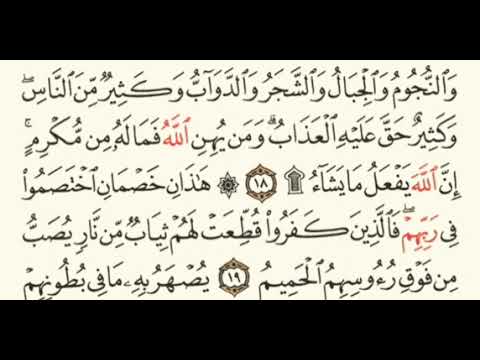 وَٱلنُّجُومُ وَٱلْجِبَالُ وَٱلشَّجَرُ وَٱلدَّوَآبُّ وَكَثِيرٌ مِّنَ ٱلنَّاسِ ۖ
وَكَثِيرٌ حَقَّ عَلَيْهِ ٱلْعَذَابُ ۗ وَمَن يُهِنِ ٱللَّهُ فَمَا لَهُۥ مِن مُّكْرِمٍ ۚ
إِنَّ ٱللَّهَ يَفْعَلُ مَا يَشَآءُ ۩ ١٨ ۞ هَـٰذَانِ خَصْمَانِ ٱخْتَصَمُوا۟
فِى رَبِّهِمْ ۖ فَٱلَّذِينَ كَفَرُوا۟ قُطِّعَتْ لَهُمْ ثِيَابٌ مِّن نَّارٍ يُصَبُّ
مِن فَوْقِ رُءُوسِهِمُ ٱلْحَمِيمُ ١٩ يُصْهَرُ بِهِۦ مَا فِى بُطُونِهِمْ